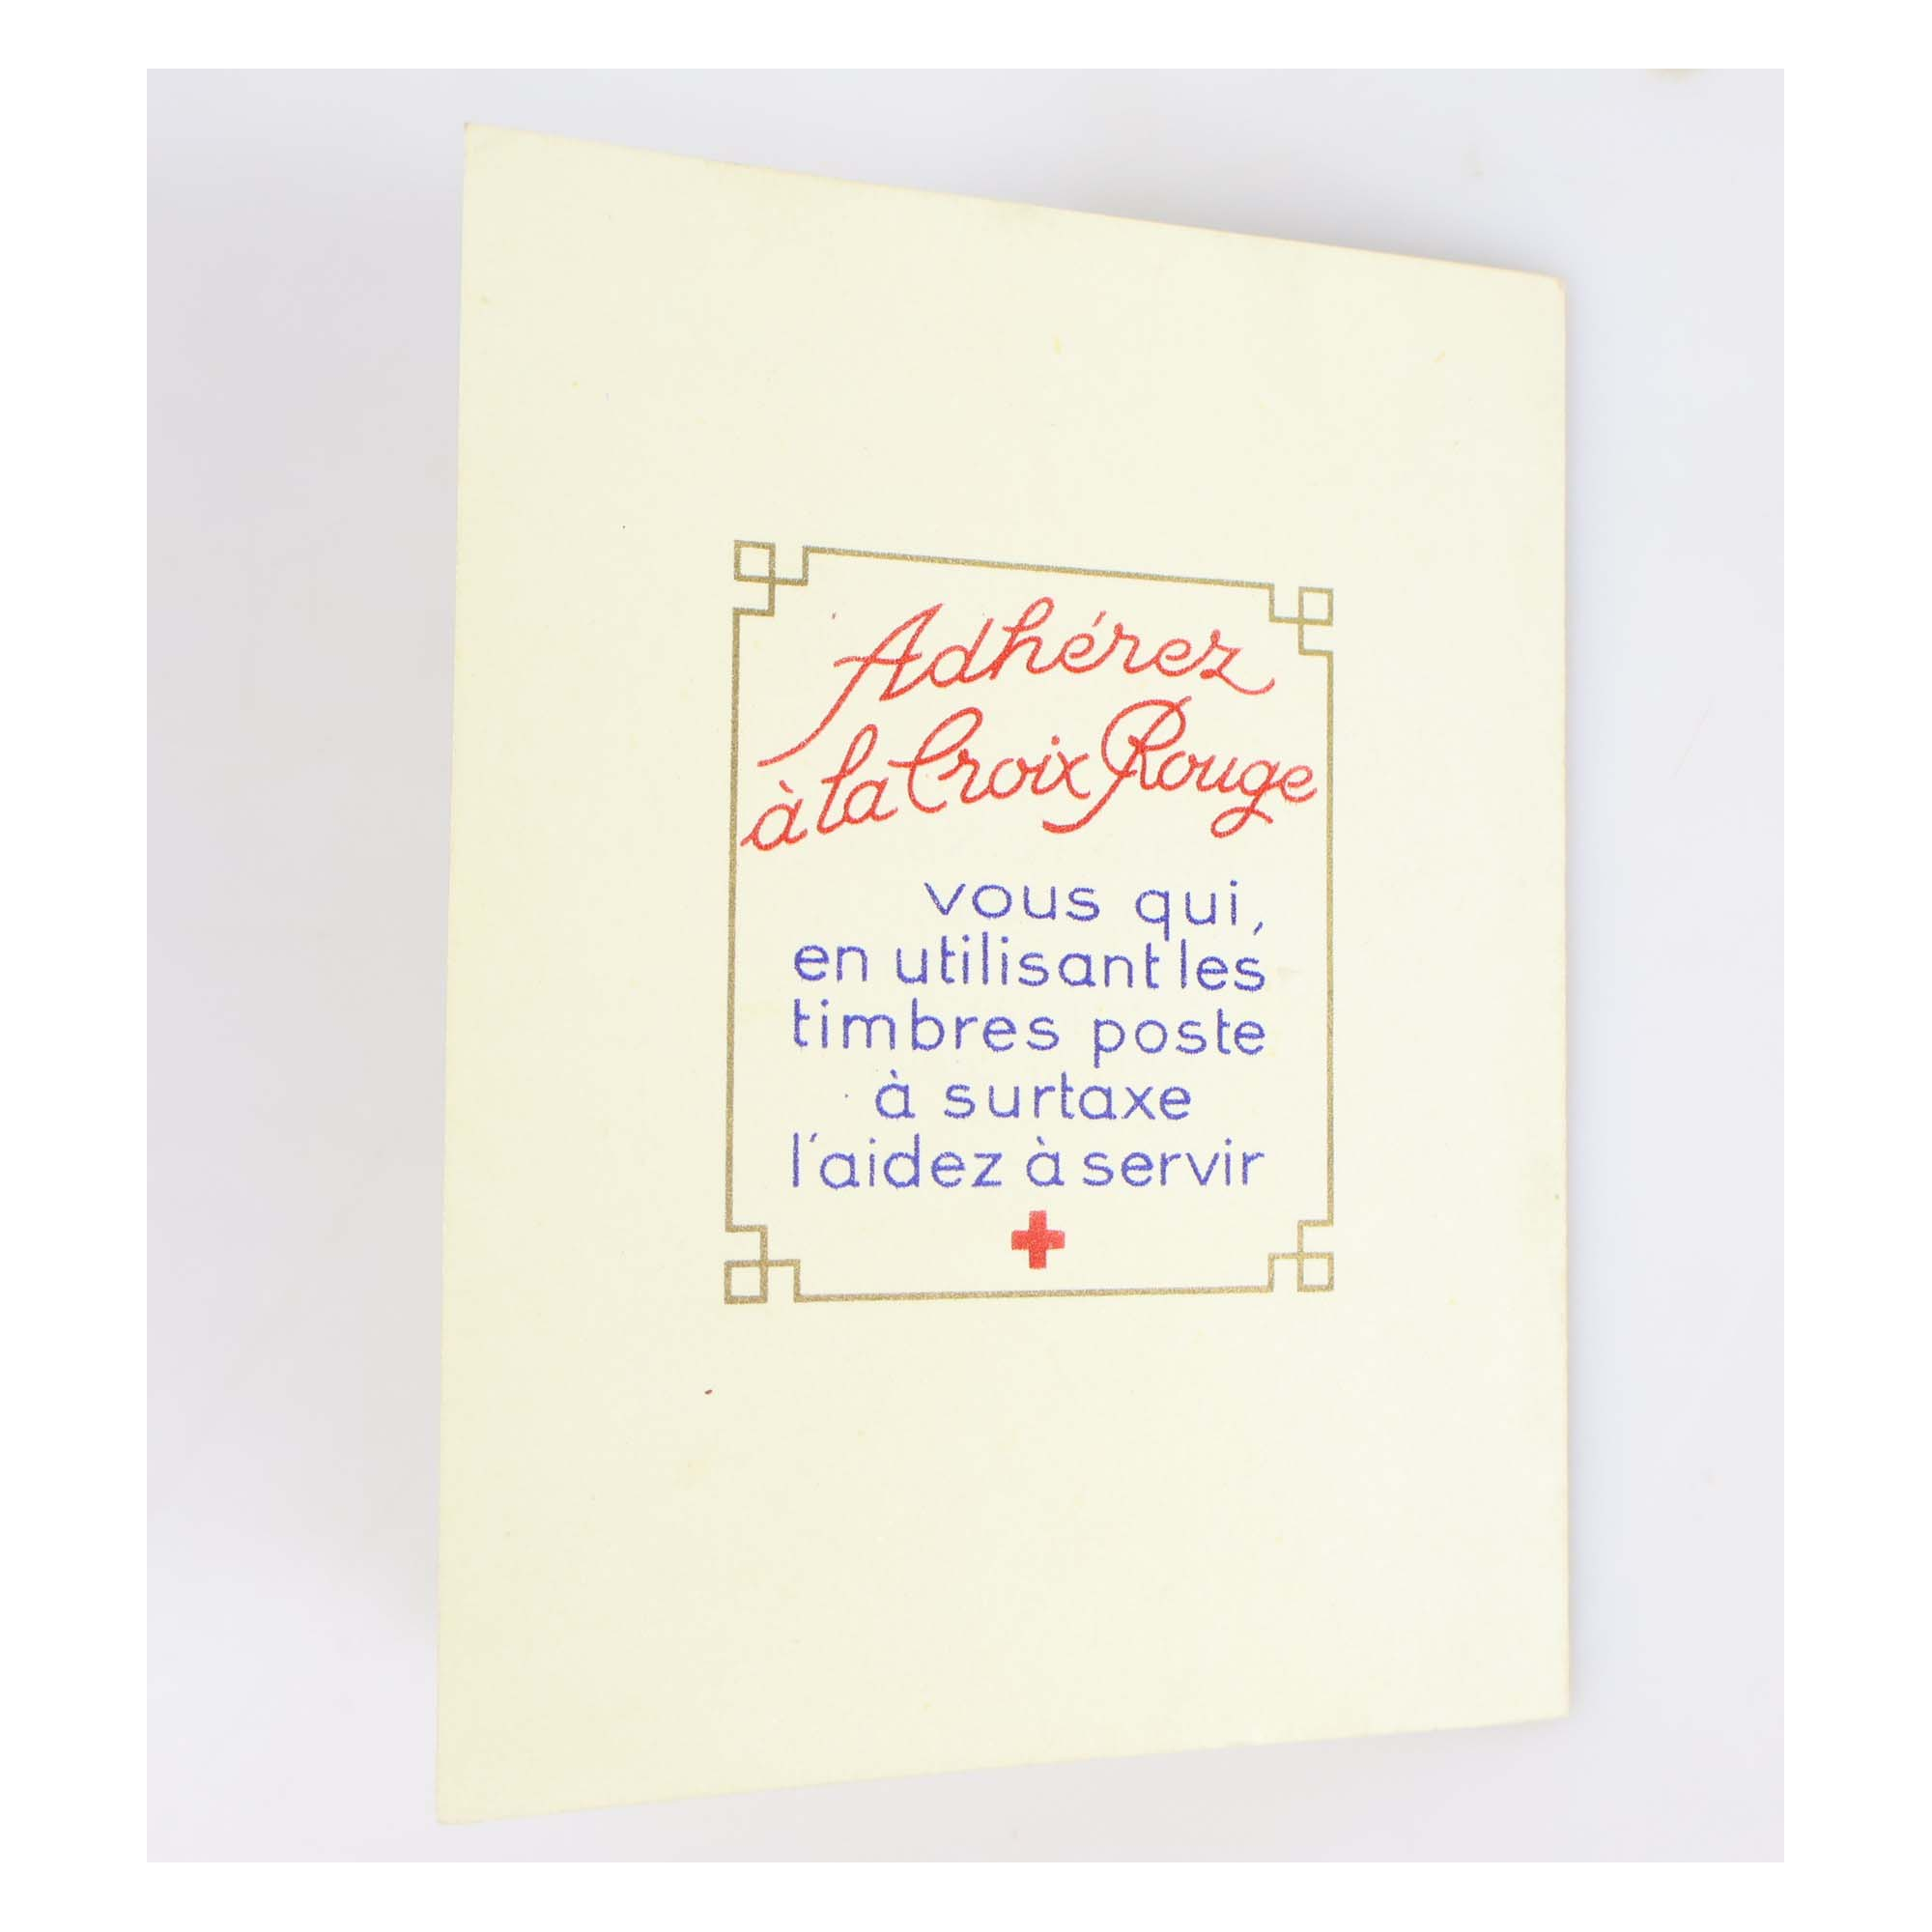 Adhérez
à la Croix Rouge
vous qui,
en utilisant les
timbres poste
à surtaxe
l'aidez à servir